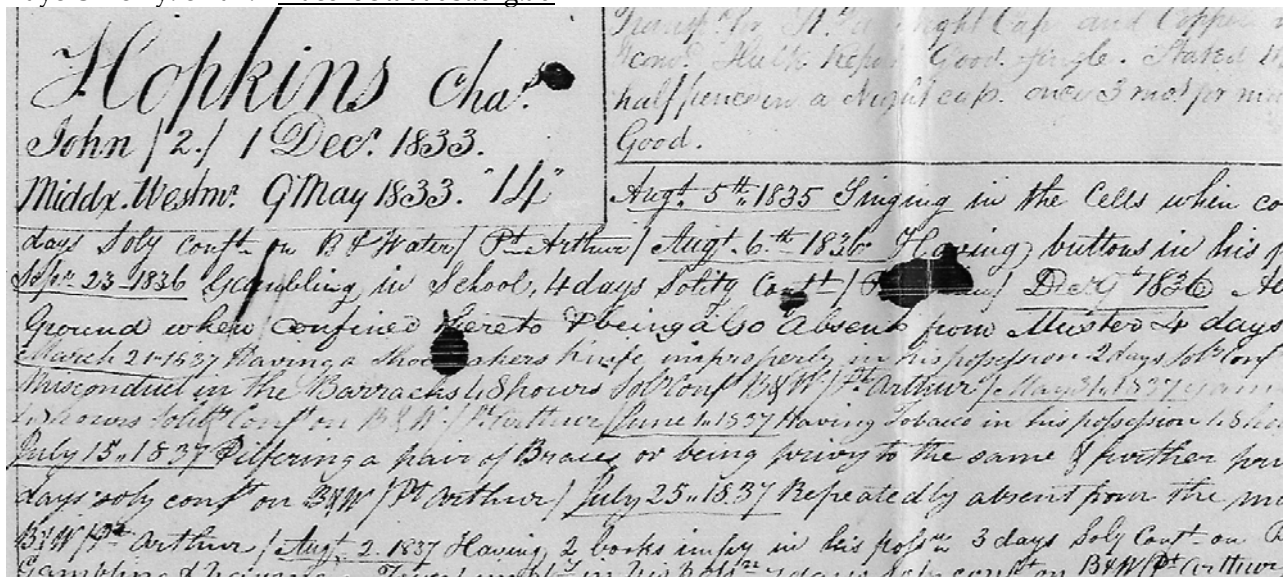 Hopkins Chas.
John / 2. / 1 Decr. 1833.
Middx. Westmr. 9 May 1833. "14"
Transpd. for St. Night Cap and Copper
Hulk Report Good. Single. Stated
half pence in a Night cap. once 3 mos. for
Good.
Augt. 5th. 1835 Singing in the Cells when co
days Soly Conft. on B & Water / Pt. Arthur / Augt. 6th 1836 Having buttons in his p
Sepr. 23 1836 Gambling in School, 4 days Solity Conft / Decr 1836
Ground when confined thereto & being also absent from Muster 4 days
March 21 1837 Having a Shoemakers Knife improperly in his possession 2 days Soly Conf
Misconduct in the Barracks 48 hours Soly Conft B&W / Pt Arthur / May 31. 1837
48 hours Solity Conft on B&W / Pt. Arthur / June 1. 1837 Having Tobacco in his possession 48 ho
July 15,, 1837 Pilfering a pair of Braces or being privy to the same & further
days soly conft on B&W / Pt Arthur / July 25,, 1837 Repeatedly absent from the
B&W / Pt Arthur / Augt. 2. 1837 Having 2 books impy in his possn 3 days Soly Conft. on
Gambling & having in his possn days soly conft on B&W / Pt. Arthur